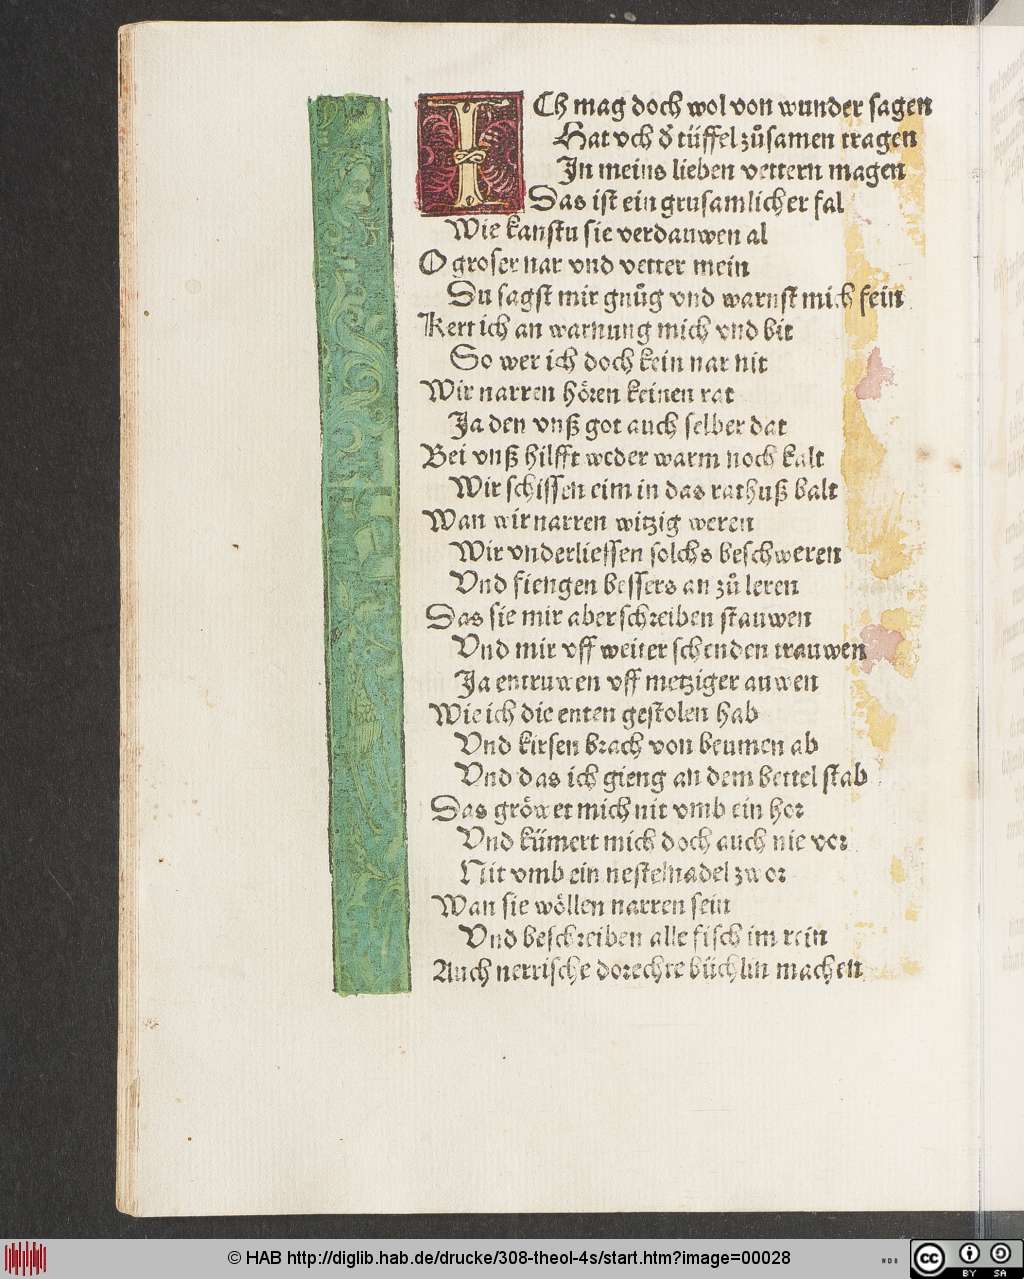 ICh mag doch wol von wunder sagen
Hat vch d̕ tüffel zůsamen tragen
In meins lieben vettern magen
Das ist ein grusamlicher fal
Wie kanstu sie verdauwen al
O groser nar vnd vetter mein
Du sagst mir gnůg vnd warnst mich fein
Kert ich an warnung mich vnd bit
So wer ich doch kein nar nit
Wir narren hören keinen rat
Ja den vnß got auch selber dat
Bei vnß hilfft weder warm noch kalt
Wir schissen eim in das rathuß balt
Wan wir narren witzig weren
Wir vnderliessen solchs beschweren
Vnd fiengen bessers an zů leren
Das sie mir aber schreiben stauwen
Vnd mir vff weiter schenden trauwen
Ja entruwen vff metziger auwen
Wie ich die enten gestolen hab
Vnd kirsen brach von beumen ab
Vnd das ich gieng an dem bettel stab
Das gröwet mich nit vmb ein hor
Vnd kümert mich doch auch nie vor
Nit vmb ein nestelnadel zwor
Wan sie wöllen narren sein
Vnd beschreiben alle fisch im rein
Auch nerrische dorechte büchlin machen
© HAB http://diglib.hab.de/drucke/308-theol-4s/start.htm?image=00028
WDB
cc BY SA